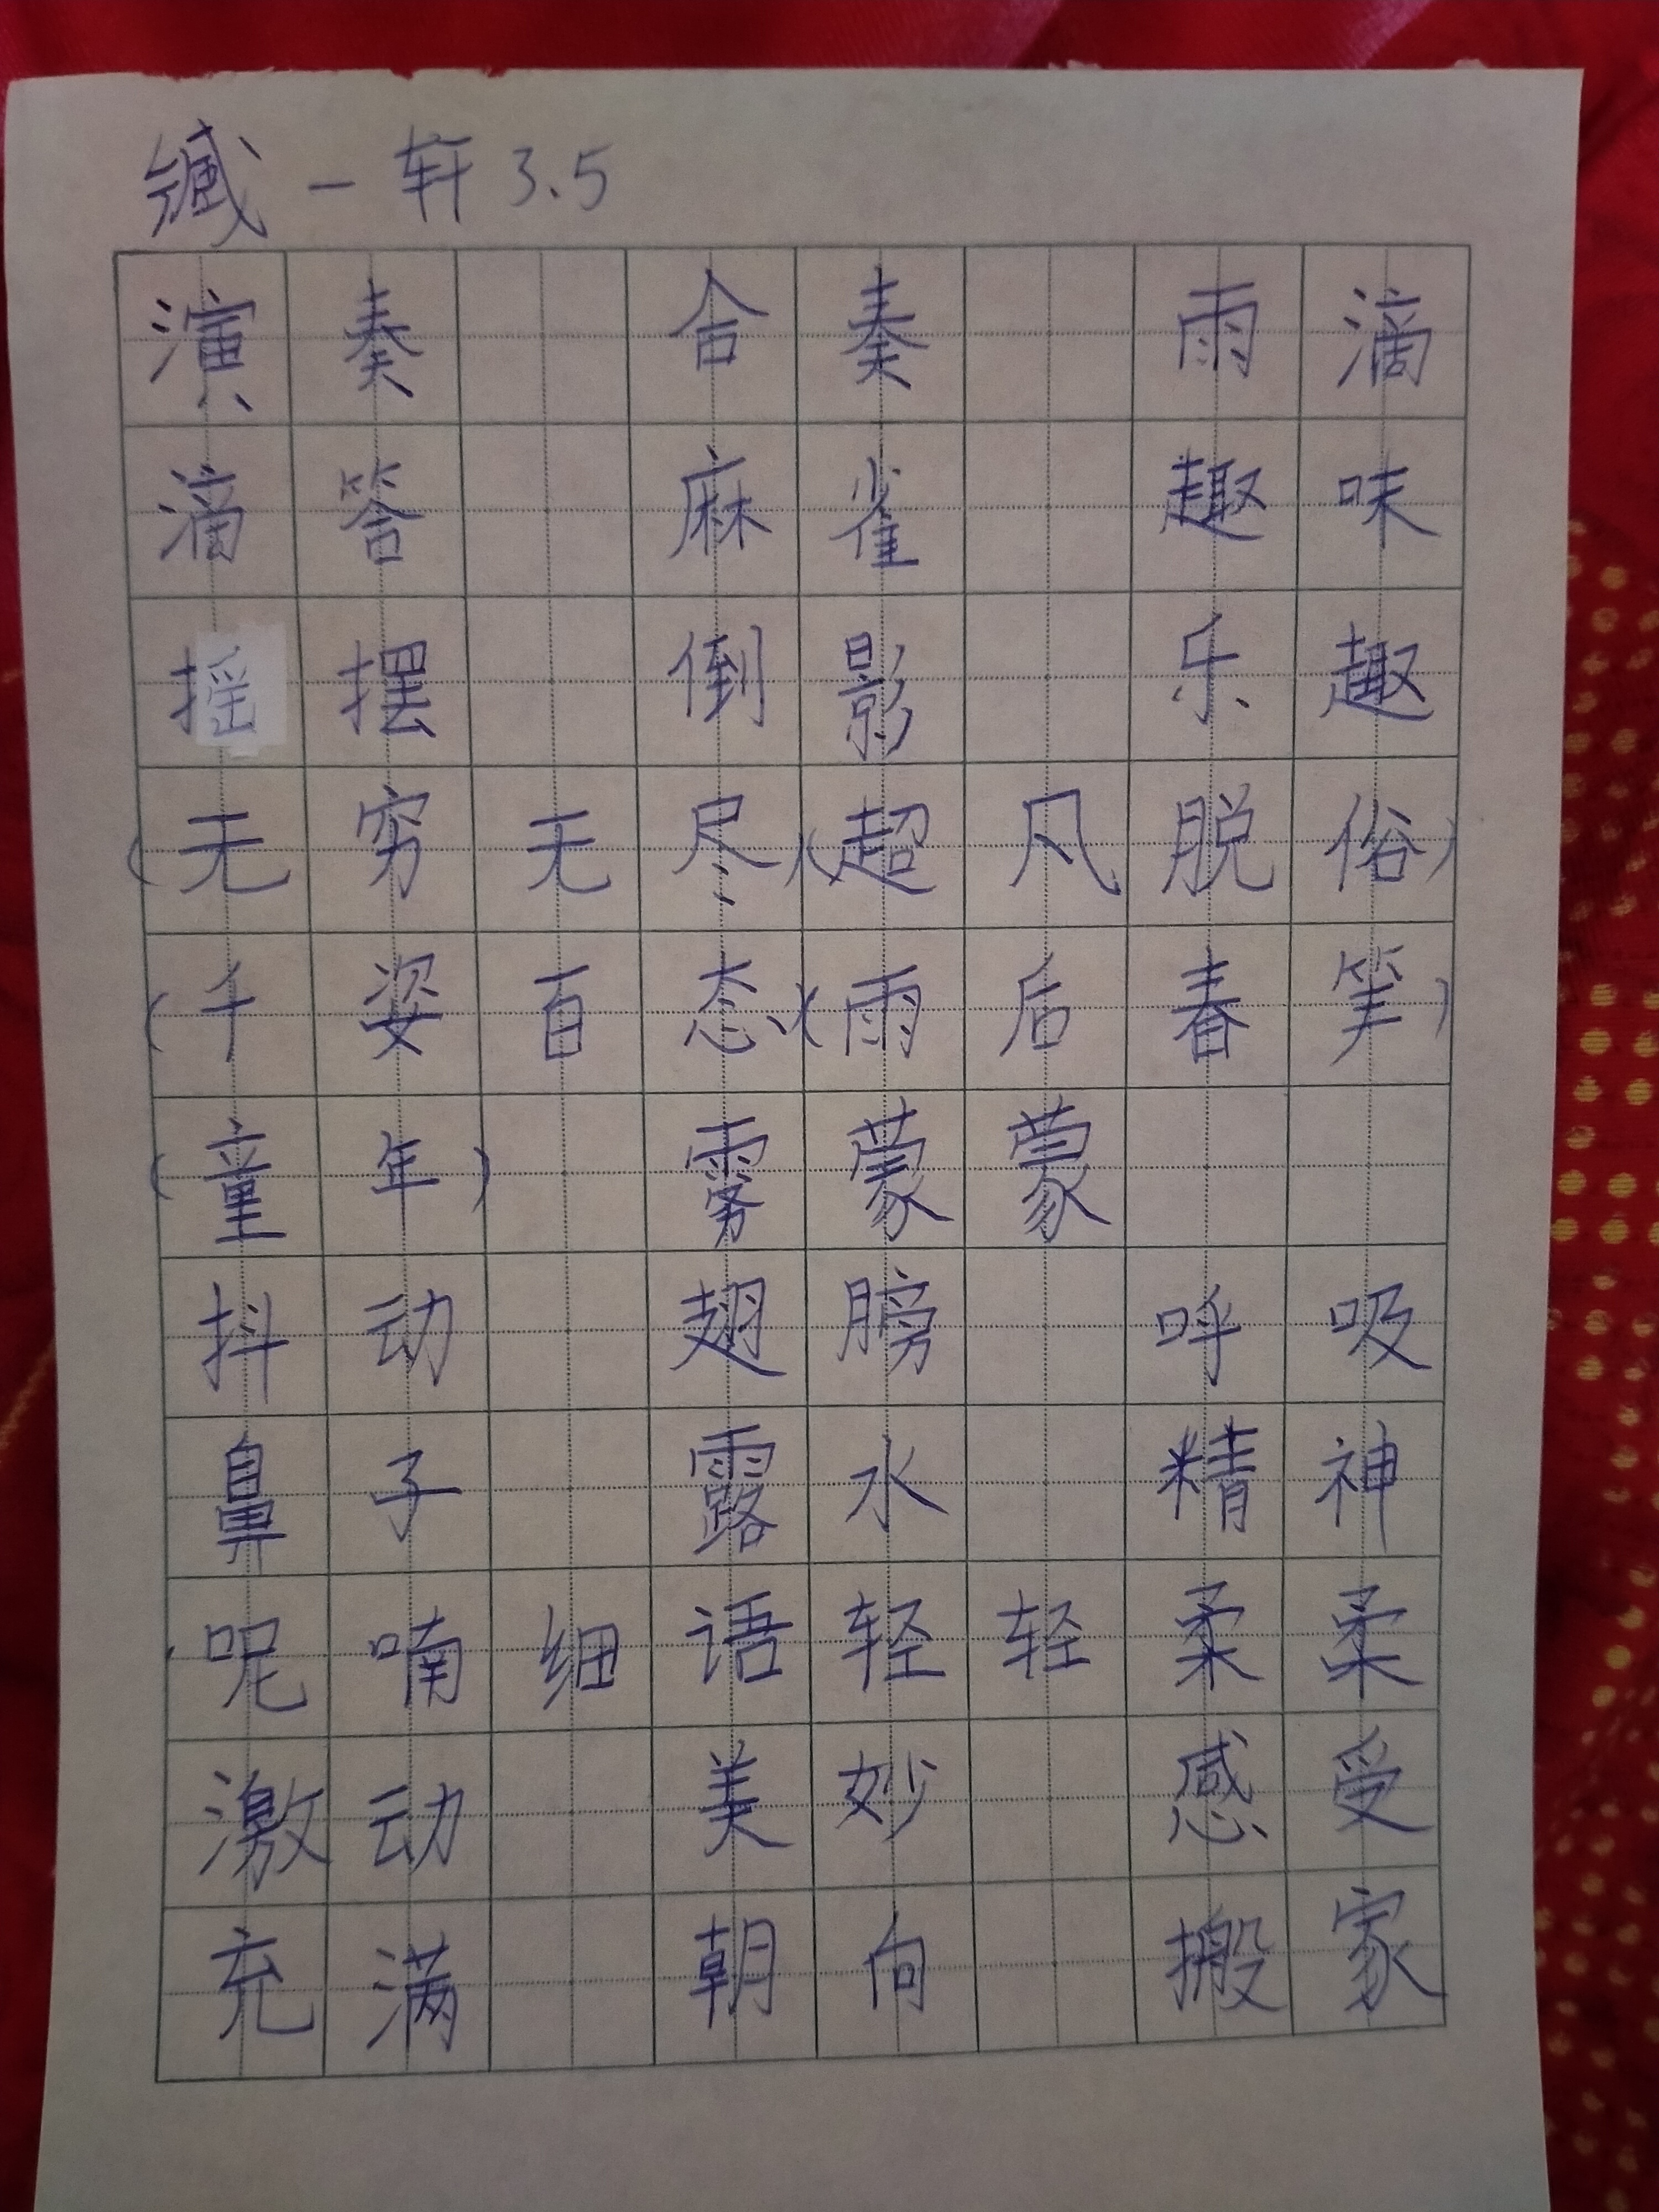 缄一轩 3.5
演奏 合奏 雨滴
滴答 麻雀 趣味
摇摆 倒影 乐趣
(无穷无尽)(超凡脱俗)
(千姿百态)(雨后春笋)
(童年) 雾蒙蒙
抖动 翅膀 呼吸
鼻子 露水 精神
呢喃细语 轻轻柔柔
激动 美妙 感受
充满 朝向 搬家